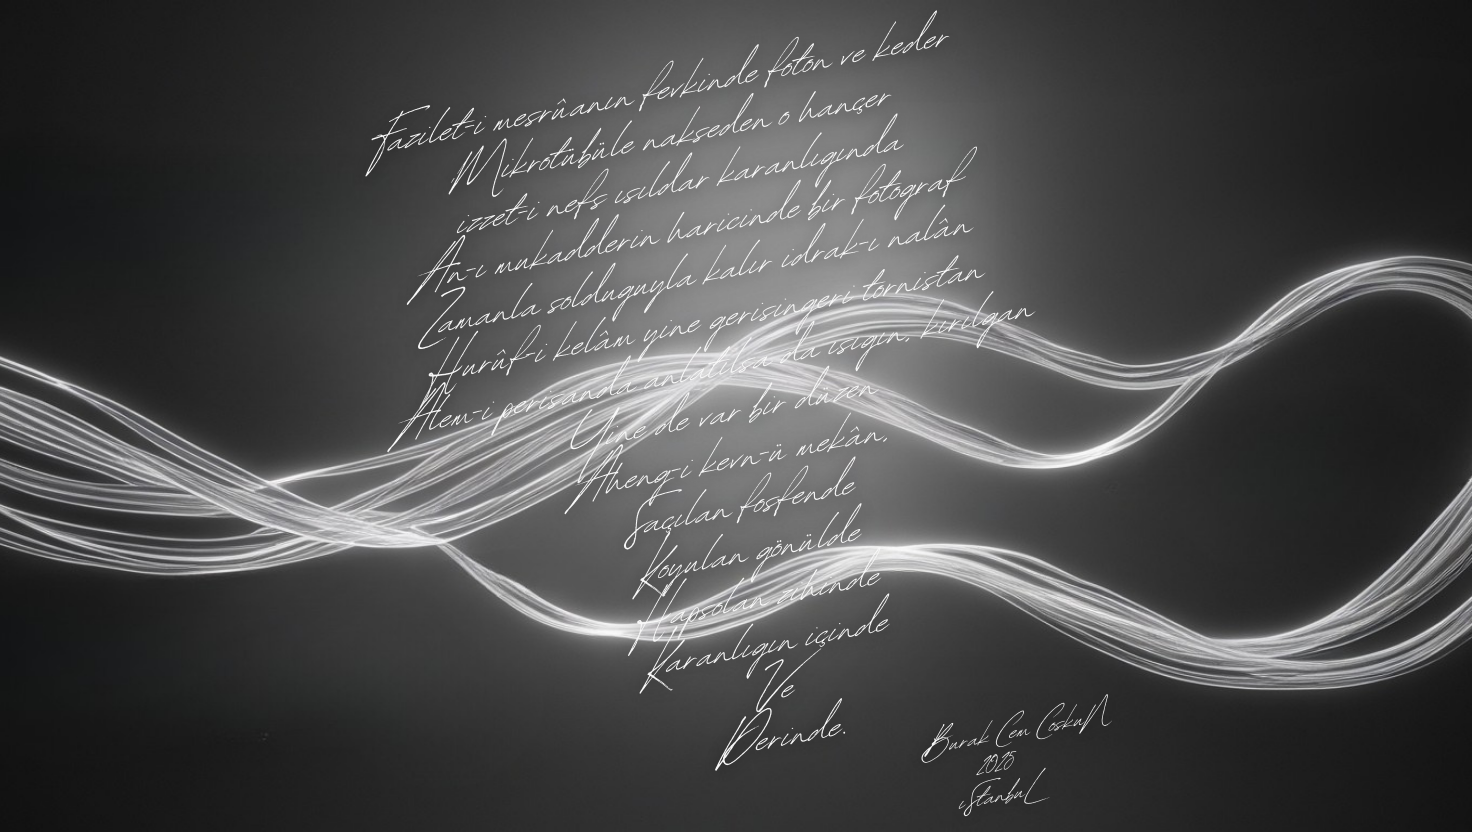 Fazilet-i mesrûanın fevkinde foton ve keder
Mikrotübüle nakseden o hançer
izzet-i nefs ısıldar karanlıgında
An-ı mukadderin haricinde bir fotograf
Zamanla solduguyla kalır idrak-ı nalân
Hurûf-i kelâm yine gerisingeri tornistan
Alem-i perisanda anlatılsa da ısıgın, kırılgan
Yine de var bir düzen
Aheng-i kevn-ü mekân,
Saçılan fosfende
Koyulan gönülde
Hapsolan zihinde
Karanlıgın içinde
Ve
Derinde.
Burak Cem CoskuN
2025
ıstanbuL